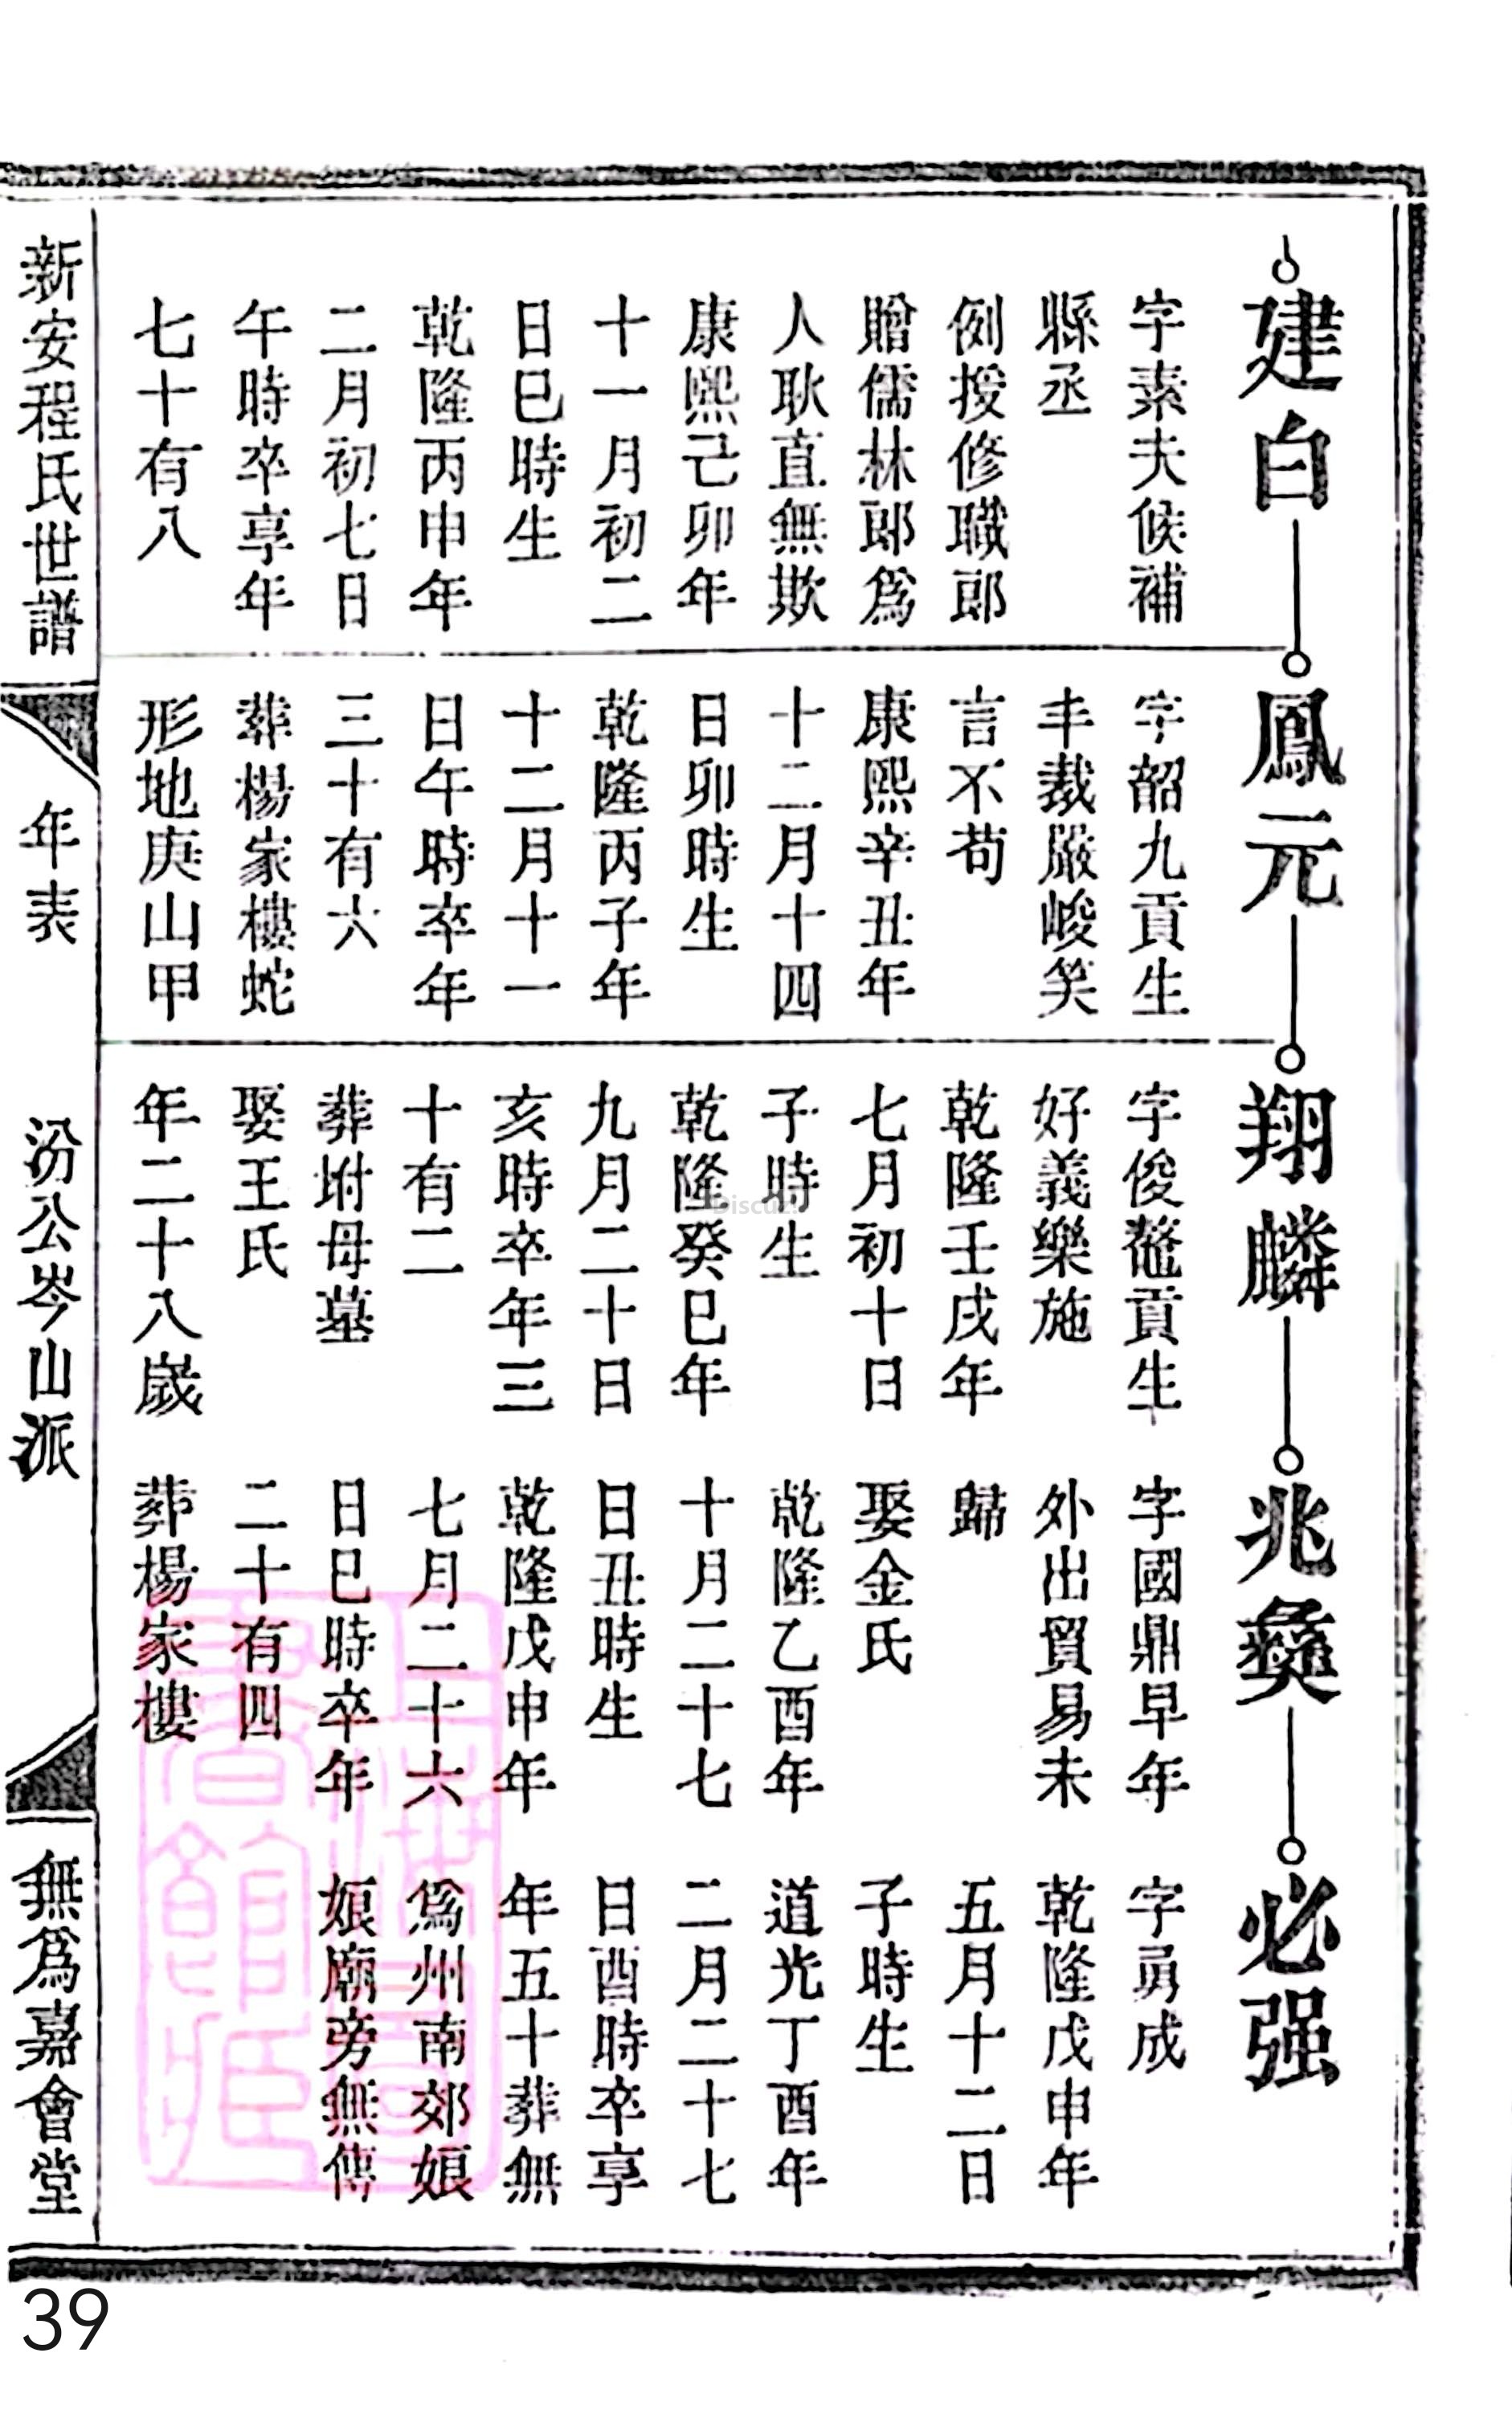 建白
字素夫候補
縣丞
例授修職郎
贈儒林郎爲
人耿直無欺
康熙己卯年
十一月初二
日巳時生
乾隆丙申年
二月初七日
午時卒享年
七十有八
鳳元
字韶九貢生
丰裁嚴峻笑
言不苟
康熙辛丑年
十二月十四
日卯時生
乾隆丙子年
十二月十一
日午時卒年
三十有六
葬楊家樓蛇
形地庚山甲
翔麟
字俊鼇貢生
好義樂施
乾隆壬戌年
七月初十日
子時生
乾隆癸巳年
九月二十日
亥時卒年三
十有二
葬坿母墓
娶王氏
年二十八歲
兆彝
字國鼎早年
外出貿易未
歸
娶金氏
乾隆乙酉年
十月二十七
日丑時生
乾隆戊申年
七月二十六
日巳時卒年
二十有四
葬楊家樓
必强
字勇成
乾隆戊申年
五月十二日
子時生
道光丁酉年
二月二十七
日酉時卒享
年五十葬無
爲州南郊娘
娘廟旁無傳
新安程氏世譜
年表
汾公岑山派
無爲嘉會堂
上海圖書館藏
Discuz!
39